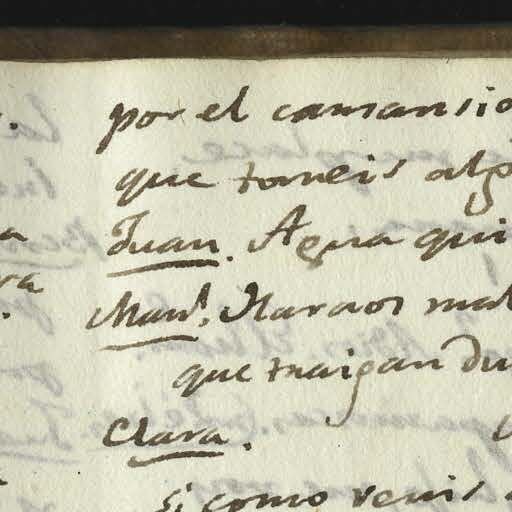 por el cansansio
que toneis alg
Juan. Agua qui
Manl. Haraos mal
que traigan du
Clara.
si como venis